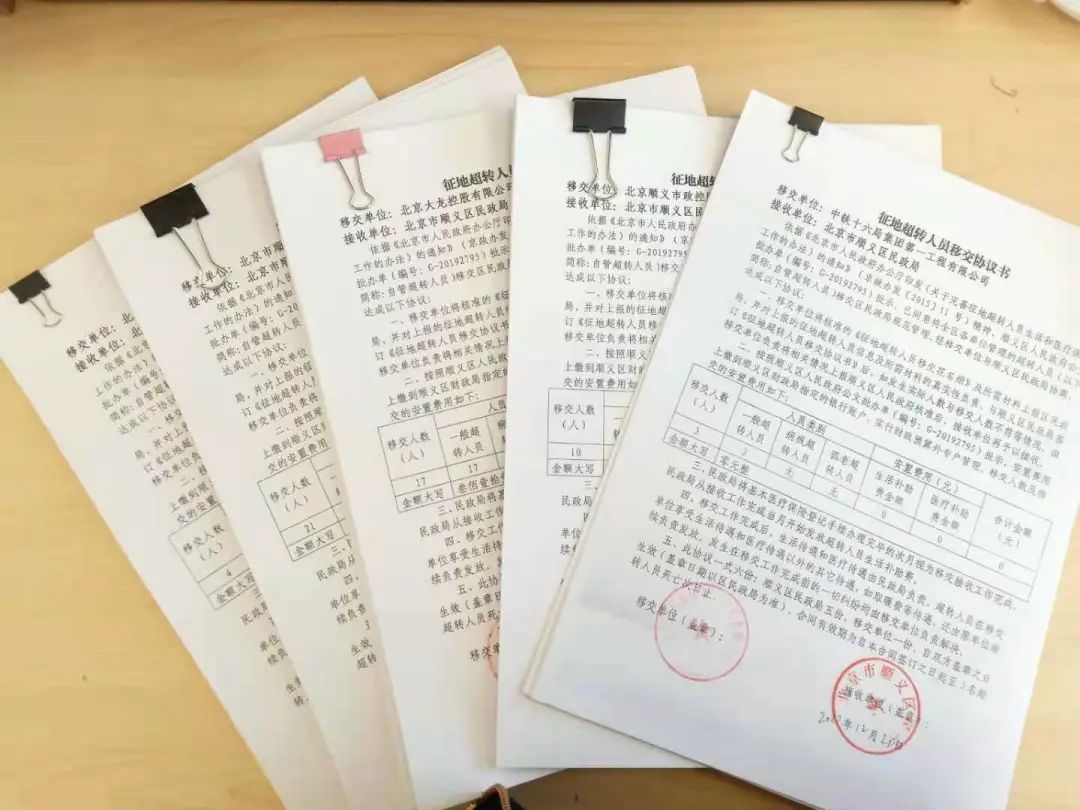 北京市
移交单位：北
接收单位：北京市顺
依据《北
工作的办法）的
批办单（编号：
简称:自管超转
达成以下协议：
一、移
局，并对上
订《征地超
移交单位负
二、
上缴到顺义
交的安置费
移交人数
（人）
4
金额大写
三、
民政局从
四、
单位享受
续负责发
五
生效（
转人员
移交单位：北京市顺
接收单位：北京市
依据《北京市
工作的办法）的通知
批办单（编号：G-20
简称:自管超转人员
达成以下协议：
一、移交单
局，并对上报的
订《征地超转人
移交单位负责将
二、按照顺
上缴到顺义区
交的安置费用
移交人数
（人）
21
金额大写
三、
民政局从
四、
单位享
续负责
五
生效
超转
征地超转人员
移交单位：北京大龙控股有限公司
接收单位：北京市顺义区民政局
依据《北京市人民政府办公厅印
工作的办法）的通知》（京政办发
批办单（编号：G-20192795）批示
简称:自管超转人员）移交区民政局
达成以下协议：
一、移交单位将核准的《征
局，并对上报的征地超转人员信
订《征地超转人员移交协议书
移交单位负责将相关情况上
二、按照顺义区人民
上缴到顺义区财政局指定的
交的安置费用如下：
移交人数
（人）
人员
一般超
转人员
病
17
17
金额大写
叁佰壹拾
三、民政局将
民政局从接收工作
四、移交工作
单位享受生活待
续负责发放。
五、此协
生效（盖章日
超转人员死
移交单
征地超转
移交单位：北京顺义市政控
接收单位：北京市顺义区民
依据《北京市人民政府办
工作的办法）的通知》（京
批办单（编号：G-20192795）
简称:自管超转人员）移交
达成以下协议：
一、移交单位将核
局，并对上报的征地超
订《征地超转人员移
移交单位负责将相
二、按照顺
上缴到顺义区财
交的安置费用如
移交人数
（人）
10
金额大写
民政局
单位
续
征地超转人员移交协议书
移交单位：中铁十六局集团第一工程有限公司
接收单位：北京市顺义区民政局
依据《北京市人民政府办公厅印发《关于完善征地超转人员生活和医疗保
工作的办法）的通知》（京政办发【2015】11号）精神，顺义区人民政府公
批办单（编号：G-20192795）批示，已同意将全区各单位管理的超转人员（以下
简称:自管超转人员）移交区民政局规范管理，经移交单位与顺义区民政局协商，
达成以下协议：
一、移交单位将核准的《征地超转人员移交花名册》及所需材料上报区民政
局，并对上报的征地超转人员信息及所需材料的真实性负责，与顺义区民政局签
订《征地超转人员移交协议书》后，如发生实际人数与移交人数不符等情况，由
移交单位负责将相关情况上报顺义区人民政府核准后，接收单位再予以接收。
二、按照顺义区人民政府公文批办单（编号：G-20192795）批示，安置费用
上缴到顺义区财政局指定的银行账户，实行财政预算外专户管理，移交人数及移
交的安置费用如下：
移交人数
（人）
人员类别
安置费用（元）
一般超
转人员
病残超
转人员
孤老超
转人员
生活补助
费金额
医疗补助
费金额
合计金额
（元）
3
3
无
无
0
0
0
金额大写
零元整
三、民政局将基本医疗保险登记手续办理完毕的次月视为移交接收工作完成，
民政局从接收工作完成当月开始发放超转人员生活补助费。
四、移交工作完成后，生活待遇和医疗待遇由民政局负责，超转人员在移交
单位享受生活待遇和医疗待遇以外的其它待遇，如取暖费等待遇，还由原单位继
续负责发放。发生在移交工作完成前的一切纠纷均由移交单位负责解决。
五、此协议一式六份，顺义区民政局五份，移交单位一份，自双方盖章之日
生效（盖章日期以区民政局为准），合同有效期为自本合同签订之日起至）名超
转人员死亡止日止。
移交单位（盖章）：
接收单位（盖章）：
北京市顺义区